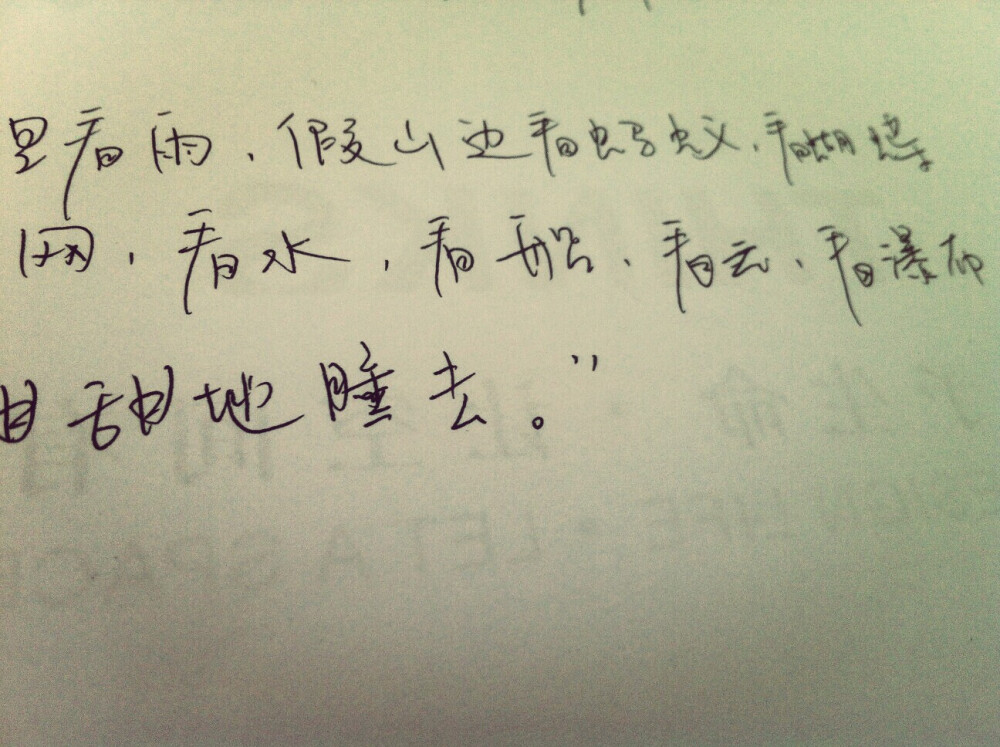 里看雨，假山边看蚂蚁，看蝴蝶
网，看水，看船，看云，看瀑布
甜甜地睡去。”